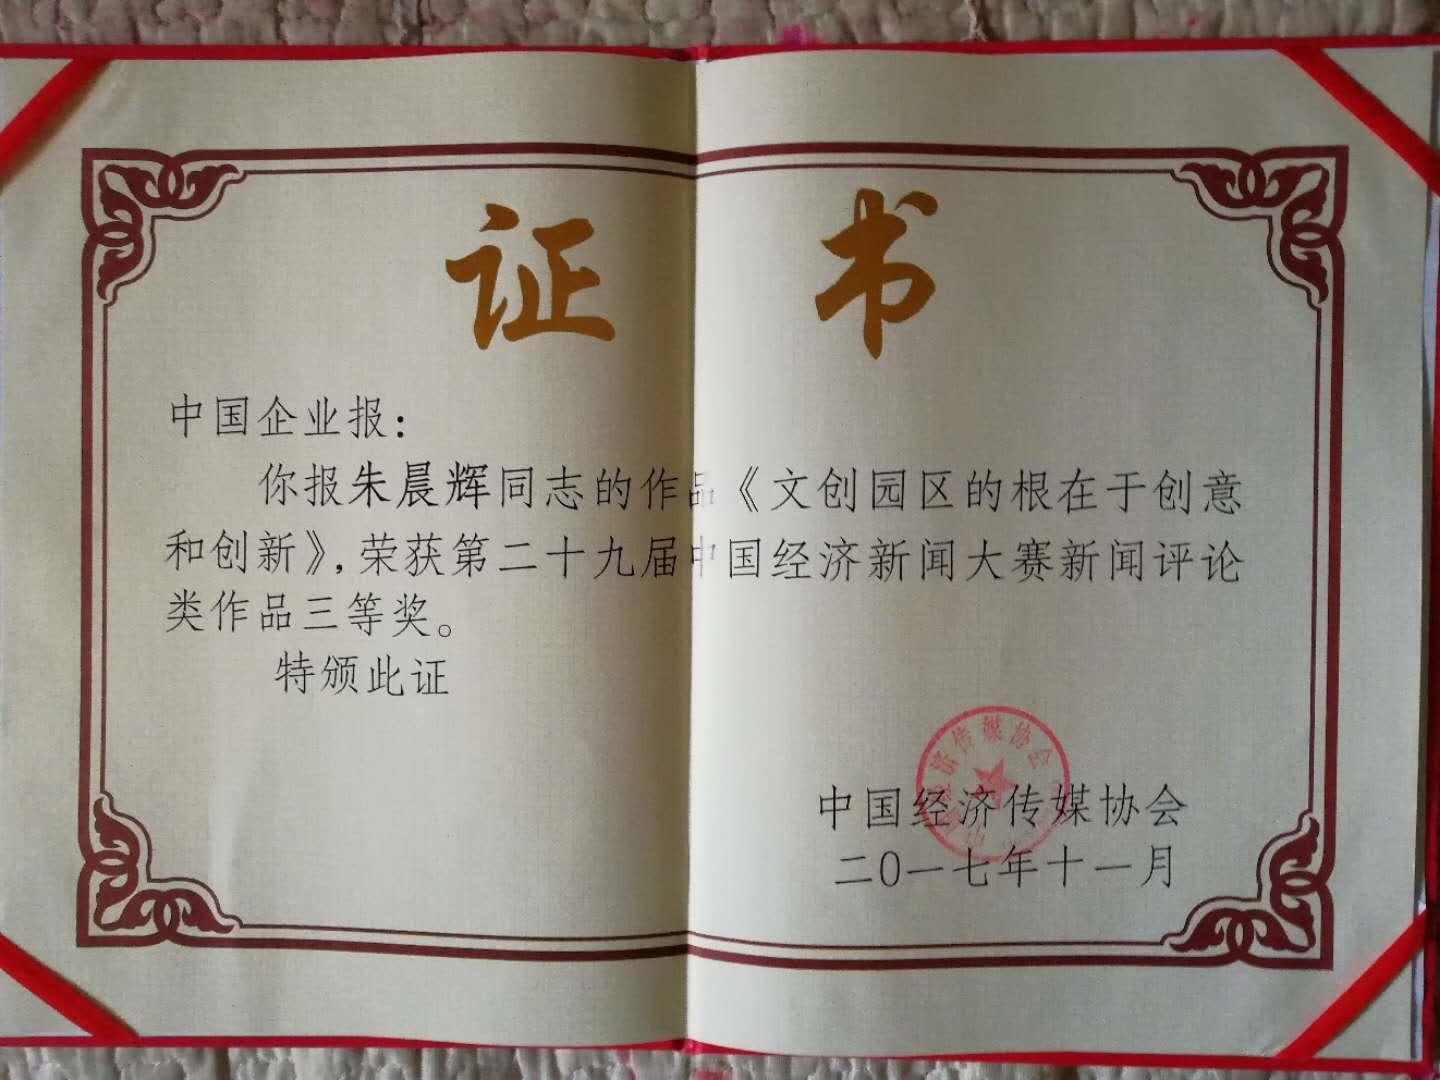 证书
中国企业报：
你报朱晨辉同志的作品《文创园区的根在于创意
和创新》，荣获第二十九届中国经济新闻大赛新闻评论
类作品三等奖。
特颁此证
济传媒协会
中国经济传媒协会
二〇一七年十一月